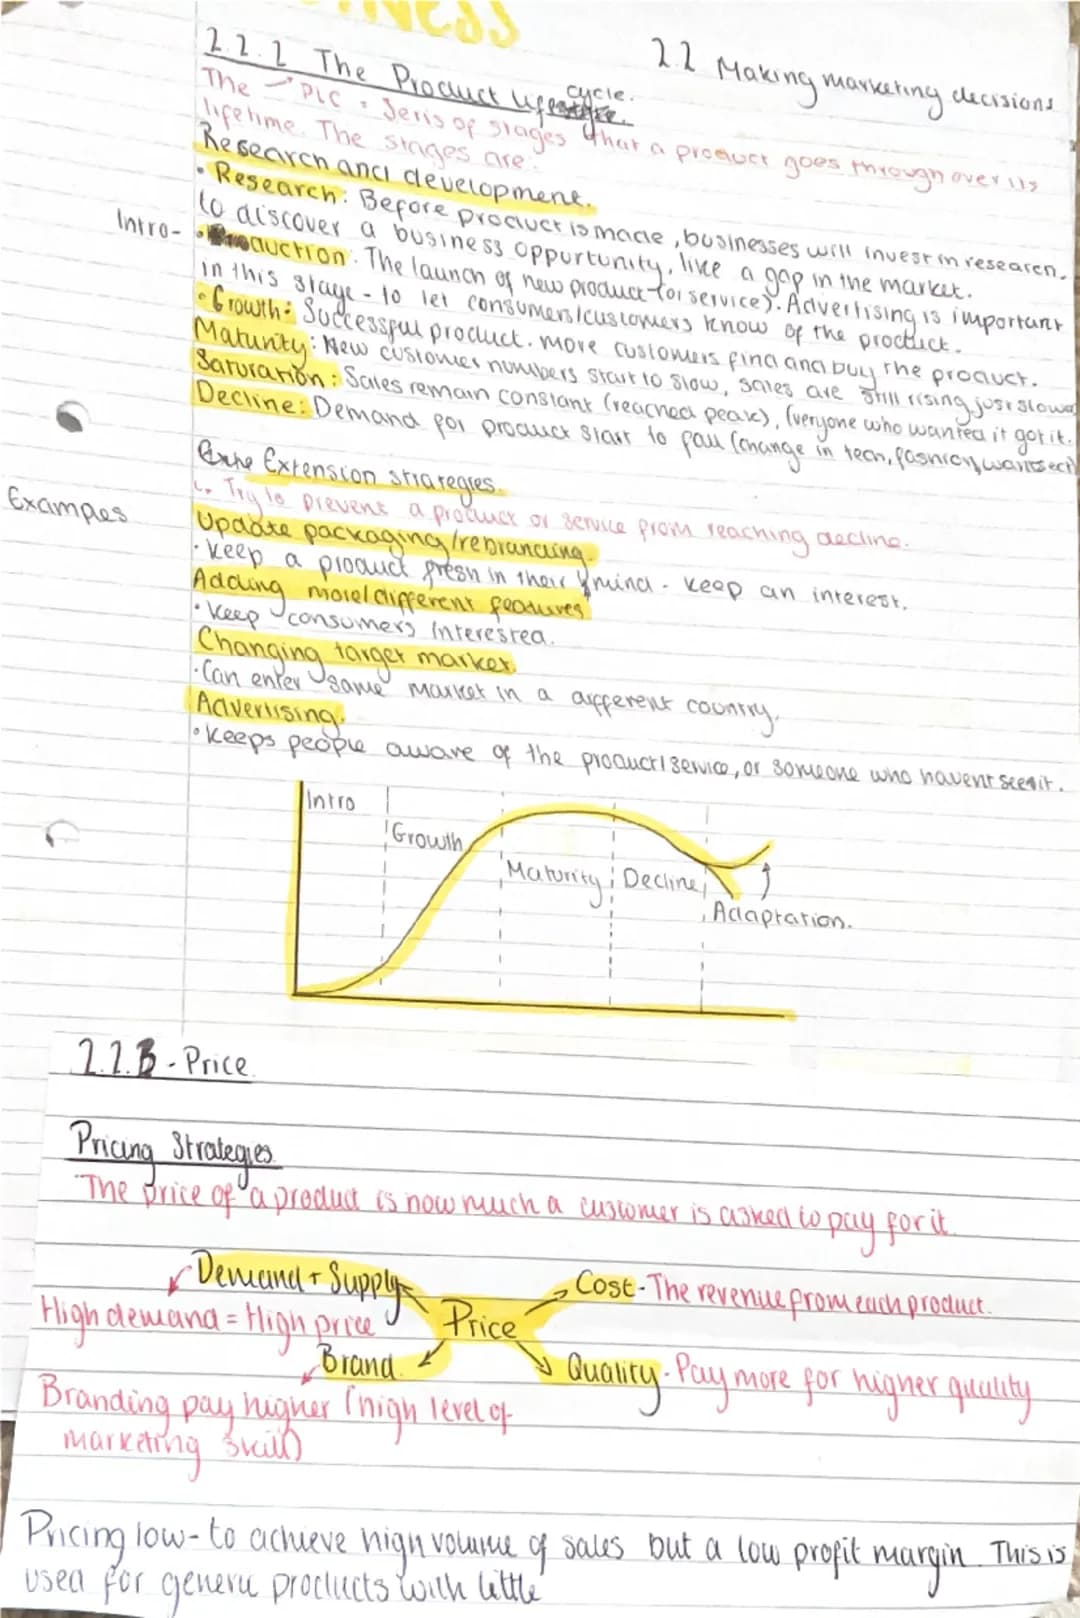 2.2 Making marketing decisions
2.2.2 The Product Life cycle.
The → PLC = Seris of stages that a product goes through over its
lifetime. The stages are:
Research and development.
• Research: Before product is made, businesses will invest in research.
to discover a business oppurtunity, like a gap in the market.
Intro- • duction: The launch of new product (or service). Advertising is important
in this stage - to let consumers/customers know of the product.
• Growth: Successful product. more customers find and buy the product.
Maturity: New customer numbers start to slow, sales are still rising, just slower
Saturation: Sales remain constant (reached peak), (everyone who wanted it got it.
Decline: Demand for product start to fall (change in tech, fashion, wants ect)
The Extension strategies.
↳ Try to prevent a product or service from reaching decline.
Examples
Update packaging/rebranding.
• keep a product fresh in their mind - keep an interest.
Adding more/different features
• keep consumers interested.
Changing target market.
• Can enter same market in a different country.
Advertising.
• keeps people aware of the product/service, or someone who havent seen it.
Intro
Growth
Maturity
Decline
Adaptation.
2.2.3 - Price.
Pricing Strategies.
The price of a product is how much a customer is asked to pay for it.
Demand + Supply
Cost - The revenue from each product.
High demand = High price
Price
Brand.
Quality - Pay more for higher quality
Branding pay higher (high level of
marketing skill)
Pricing low - to achieve high volume of sales but a low profit margin. This is
used for generic products with little